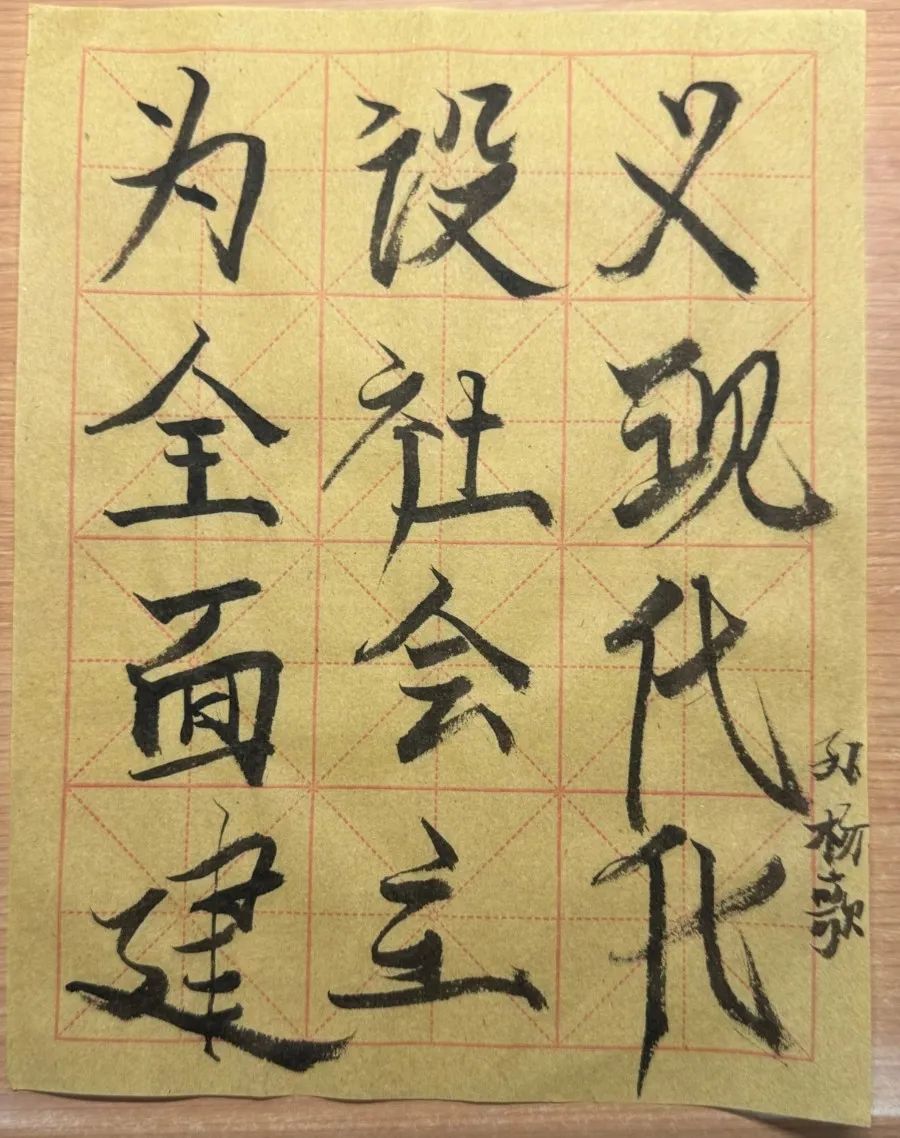 为全面建
设社会主
义现代化
孙杨歌